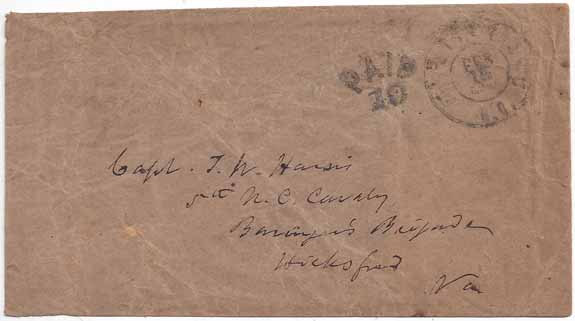 PAID
10
N.C.
Capt. T. W. Harris
5th N. C. Cavalry
Barringer's Brigade
Hicksford
Va